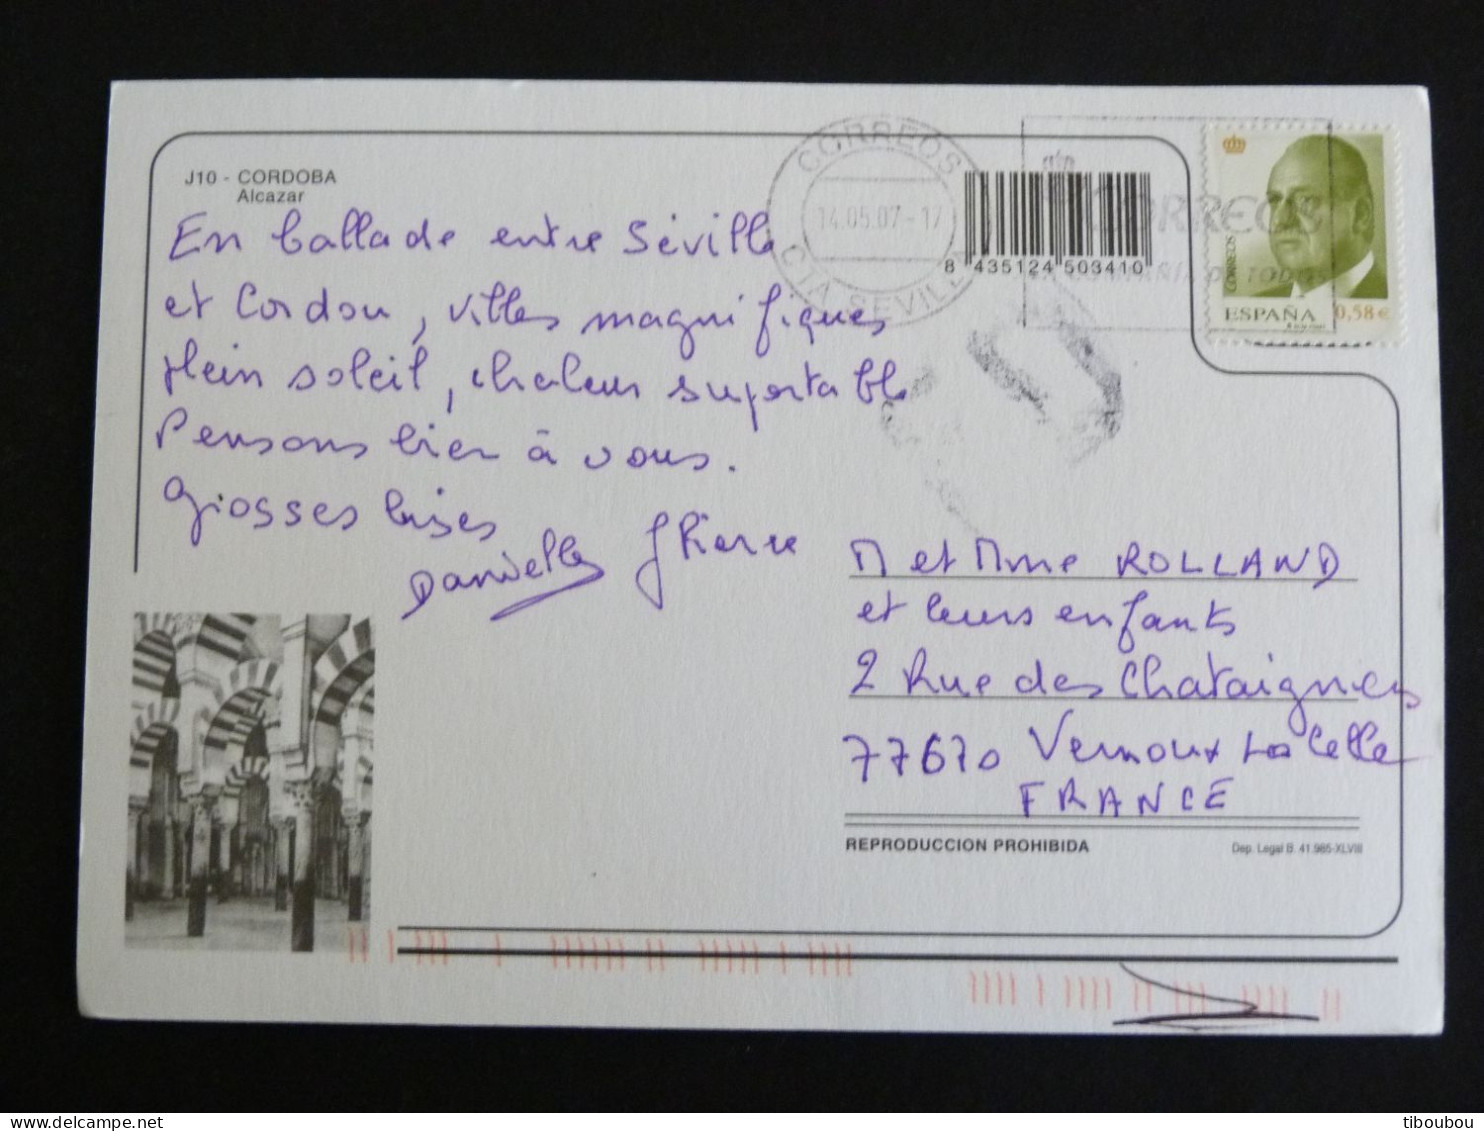 J10 - CORDOBA
Alcazar
En ballade entre Séville
et Cordou, villes magnifiques
Plein soleil, chaleur suportable
Pensons bien à vous.
Grosses bises
Danielle J Pierre
CORREOS
14.05.07-17
CTA SEVILLA
8 435124 503410
CORREOS
CORREOS
ESPAÑA
0,58€
M et Mme ROLLAND
et leurs enfants
2 Rue des Chataigniers
77670 Vernoux La Celle
FRANCE
REPRODUCCION PROHIBIDA
Dep. Legal B. 41.985-XLVIII
tiboubou